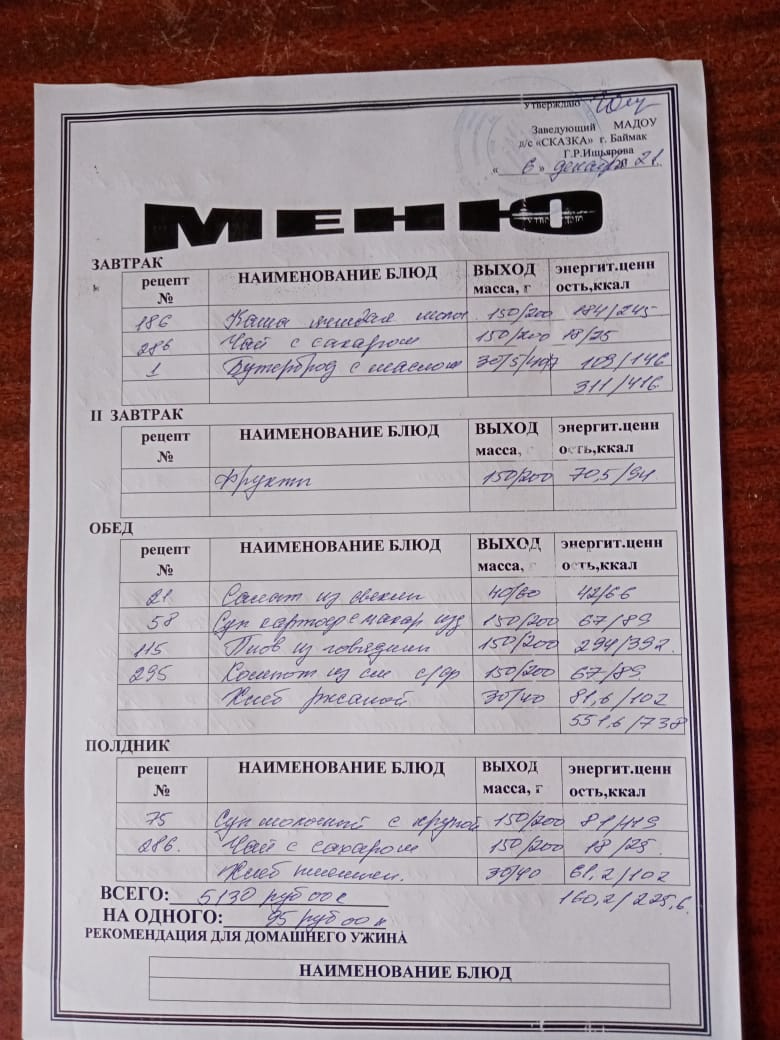 Утверждаю
Заведующий МАДОУ
д/с «СКАЗКА» г. Баймак
Г.Р.Ишьярова
« 6 » декабря 21.
МЕНЮ
ЗАВТРАК
рецепт № НАИМЕНОВАНИЕ БЛЮД ВЫХОД масса, г энергит.ценн ость,ккал
186 Каша молоч 150/200 184/245
286 Чай с сахаром 150/200 18/25
1 Бутерброд с маслом 30/5/40/7 109/146
311/416
II ЗАВТРАК
рецепт № НАИМЕНОВАНИЕ БЛЮД ВЫХОД масса, энергит.ценн ость,ккал
Фрукты 150/200 70,5/94
ОБЕД
рецепт № НАИМЕНОВАНИЕ БЛЮД ВЫХОД масса, энергит.ценн ость,ккал
21 Салат из свеклы 40/60 42/66
58 Суп картоф с макар изд 150/200 67/89
115 Плов из говядины 150/200 294/392
295 Компот из см с/фр 150/200 67/89
Хлеб ржаной 30/40 81,6/102
551,6/738
ПОЛДНИК
рецепт № НАИМЕНОВАНИЕ БЛЮД ВЫХОД масса, г энергит.ценн ость,ккал
75 Суп молочный с крупой 150/200 81/119
286. Чай с сахаром 150/200 18/25
Хлеб пшеничн. 30/40 61,2/102
ВСЕГО: 5130 руб 00 к 160,2/225,6
НА ОДНОГО: 95 руб 00 к
РЕКОМЕНДАЦИЯ ДЛЯ ДОМАШНЕГО УЖИНА
НАИМЕНОВАНИЕ БЛЮД